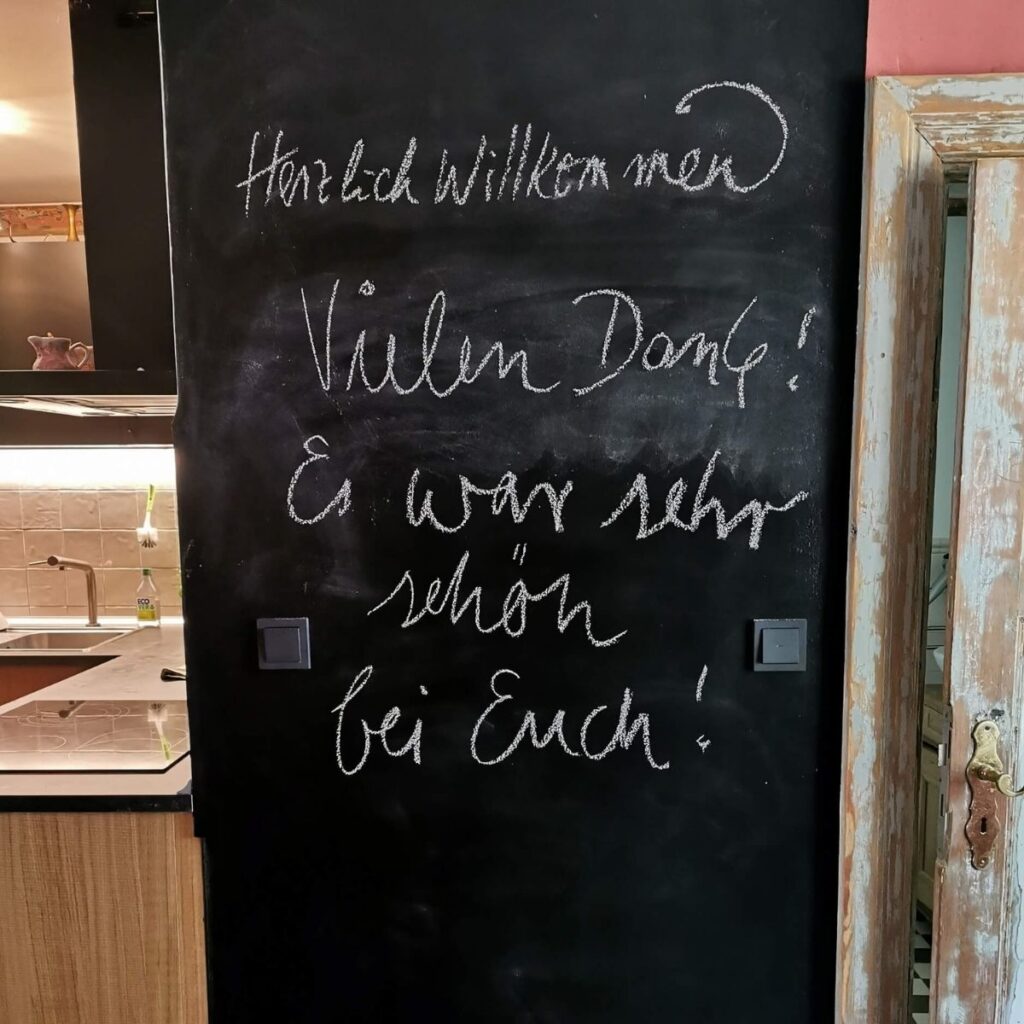 Herzlich Willkommen
Vielen Dank!
Es war sehr
schön
bei Euch!
ECO
VER